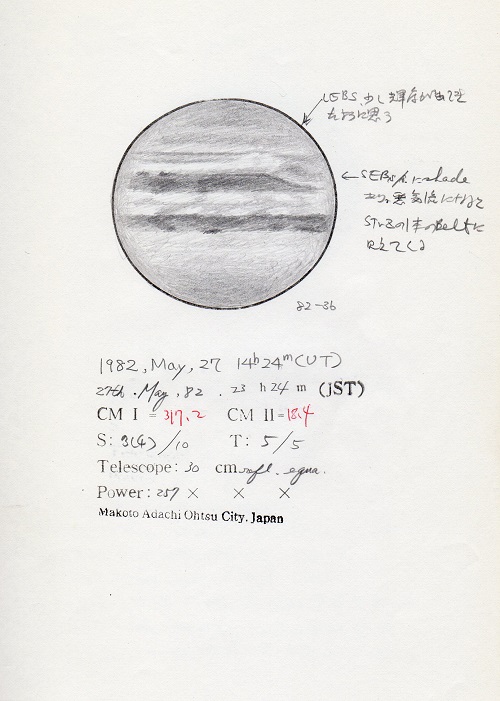 SEBs
に思う
← SEBs
shade
STrBの1本のBeltに
見えてくる
82-36
1982, May, 27 14h24m (UT)
27th. May, 82. 23 h 24 m (JST)
CM I = 317.2 CM II = 18.4
S: 3(4)/10 T: 5/5
Telescope: 30 cm refl. equa.
Power: 257 × × ×
Makoto Adachi Ohtsu City. Japan